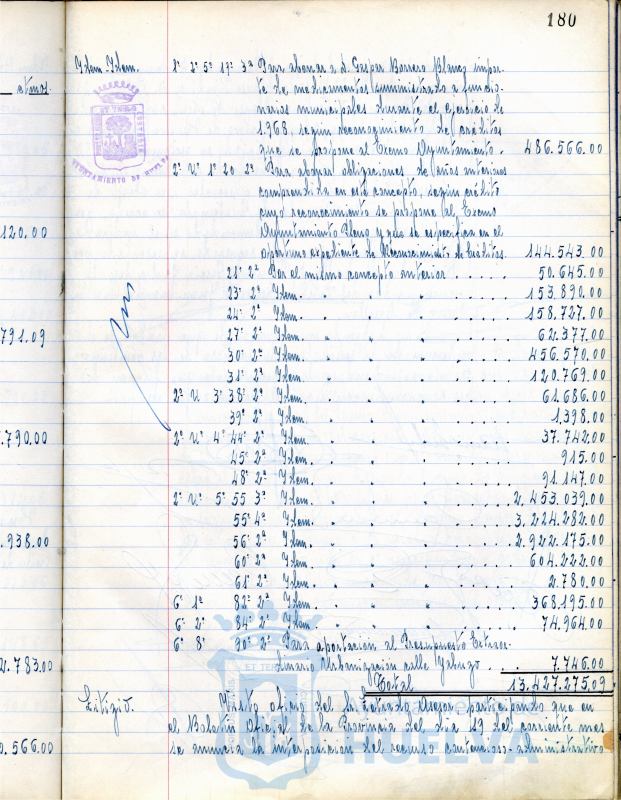 180
Idem-Idem.
1º 2º 5º 17º 3ª Para abonar a D. Gaspar Barrero Blanco impor-
te de medicamentos suministrado a funcio-
narios municipales durante el ejercicio de
1.968, según reconocimiento de créditos
que se propone al Excmo Ayuntamiento. 486.566.00
2º Uº 1º 20 2ª Para abonar obligaciones de años anteriores
comprendida en este concepto, según crédito
cuyo reconocimiento se propone al Excmo
Ayuntamiento Pleno y que se especifica en el
oportuno expediente de Reconocimiento de Créditos. 144.543.00
21º 2ª Por el mismo concepto anterior . . . . . 50.645.00
23º 2ª Idem. " " " . . . . . 153.890.00
24º 2ª Idem. " " " . . . . . 158.727.00
27º 2ª Idem. " " " . . . . . 62.377.00
30º 2ª Idem. " " " . . . . . 456.570.00
31º 2ª Idem. " " " . . . . . 120.769.00
2º U. 3º 38º 2ª Idem. " " " . . . . . 61.686.00
39º 2ª Idem. " " " . . . . . 1.398.00
2º Uº 4º 44º 2ª Idem. " " " . . . . . 37.742.00
45º 2ª Idem. " " " . . . . . 915.00
48º 2ª Idem. " " " . . . . . 91.147.00
2º Uº 5º 55 3ª Idem. " " " . . . . . 2.453.039.00
55º 4ª Idem. " " " . . . . . 3.224.282.00
56º 2ª Idem. " " " . . . . . 2.922.175.00
60º 2ª Idem. " " " . . . . . 604.222.00
61º 2ª Idem. " " " . . . . . 2.780.00
6º 1º 82º 2ª Idem. " " " . . . . . 368.195.00
6º 2º 84º 2ª Idem. " " " . . . . . 74.964.00
6º 8º 90º 2ª Para aportación al Presupuesto Extraor-
dinario Urbanización calle . . . 7.746.00
Total 13.427.275,09
Litigio. Visto oficio del Sr. Letrado Asesor participando que en
el Boletín Oficial de la Provincia del día 19 del corriente mes
se anuncia la interposición del recurso contencioso-administrativo
ctmos.
120.00
791.09
.790.00
.938.00
2.783.00
0.566.00
AYUNTAMIENTO DE HUELVA
HUELVA